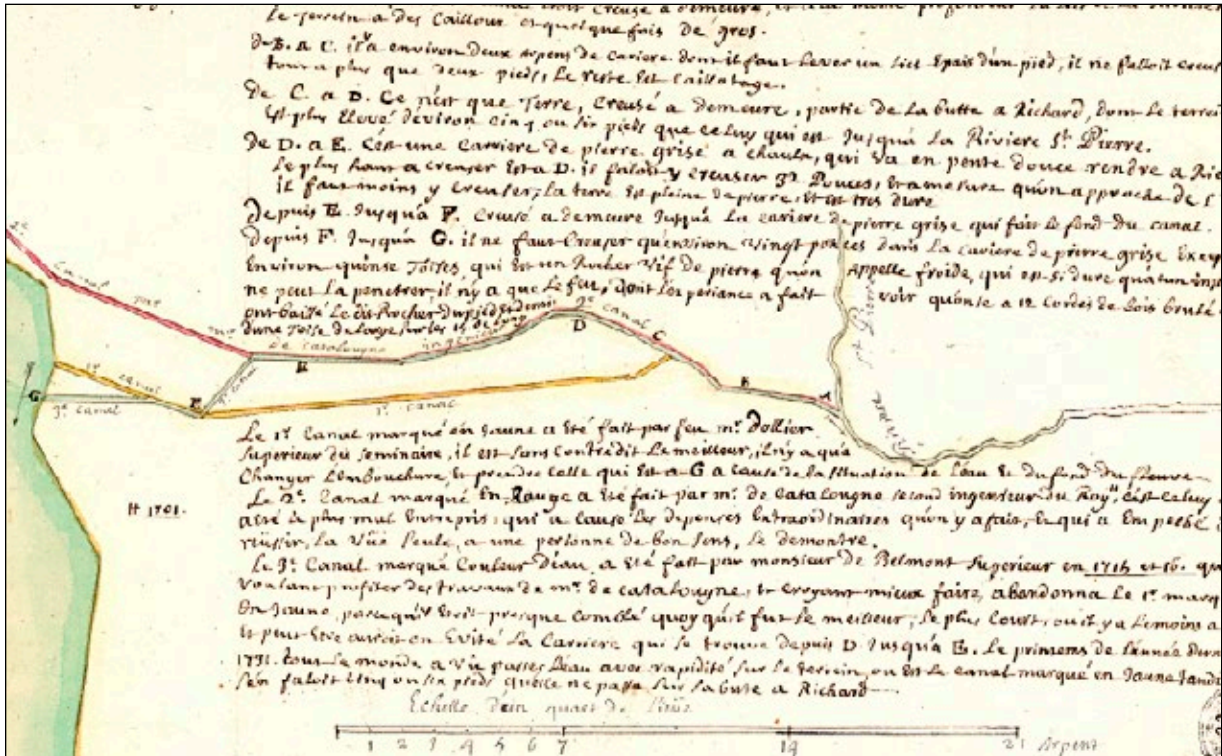 Creusé a demeure, et a la même profondeur
Le terrein a des Cailloux et quelque fois de gros.
de B. a C. il y a environ deux arpens de cariere dont il faut Lever un Lict Epais d'un pied, il ne falloit creus
tout a plus que deux pieds, Le reste Est Caillotage.
De C. a D. Ce n'est que Terre, Creusé a demeure, partie de La butte a Richard, dont Le terrei
Est plus Elevé d'eviron cinq ou six pieds que celuy qui est Jusqu'a La Riviere St. Pierre.
De D. a E. C'est une Carriere de pierre grise a chaulx, qui va en pente douce rendre a Ric
Le plus haut a creuser Est a D. il faloit y creuser 32 Pouces, Et a mesure qu'on approche de
il faut moins y Creuser, la terre Est pleine de pierre, Et est tres dure
Depuis E. Jusqu'a F. Creusé a demeure Jusqu'a La cariere de pierre grise qui fait le fond du canal.
depuis F. Jusqu'a G. il ne faut Creuser qu'environ vingt pouces dans la cariere de pierre grise Excep
Environ quinse Toises, qui Est un Rocher vif de pierre qu'on appelle froide, qui est si dure qu'a un ins
ne peut La penetrer, il n'y a que Le feu, dont L'experiance a fait voir qu'onse a 12 Cordes de bois brulé
ont baissé Le dit Rocher d'un pied et demi
d'une Toise de Large, sur les 15 de Long
2e Canal par mr. de Catalougne ingenieur 2e canal
R D C B A
1r. canal
G 3e canal
F 3e canal
1r. canal
Riviere St Pierre
Le 1r. Canal marqué en Jaune a Eté fait par feu mr. Dollier
Superieur du seminaire, il est sans Contredit Le meilleur, il n'y a qu'a
Changer L'embouchure, Et prendre Celle qui Est a G a cause de La situation de L'eau Et du fond du fleuve
Le 2e. Canal marqué En Rouge a Eté fait par mr. de Catalougne second ingenieur du Roy, c'est celuy
a eté le plus mal Entrepris, qui a cause Les depenses Extraordinaires qu'on y a fait, Et qui a Empesché
rüissir, La Vüe seule, a une personne de bon sens, Le demontre.
Le 3e. Canal marqué Couleur D'eau, a Eté fait par monsieur de Belmont Superieur en 1715 et 16. qu
Voulant profiter des travaux de mr. de Catalougne, Et croyant mieux faire, abandonna Le 1r. marq
En Jaune, parcequ'il Etoit presque Comblé quoy qu'il fut Le meilleur, Le plus Court, ou il y a Le moins a
Et peut Etre auroit on Evité La Carriere qui se trouve depuis D Jusqu'a E. Le printems de L'année
1731. tout Le monde a Vü passer L'eau avec rapidité sur Le terrein, ou Est Le canal marqué en Jaune
s'en faloit cinq ou six pieds qu'elle ne passa sur La bute a Richard
H 1701.
Echelle d'un quart de Lieüe
1 2 3 4 5 6 7 14 21 Arpent